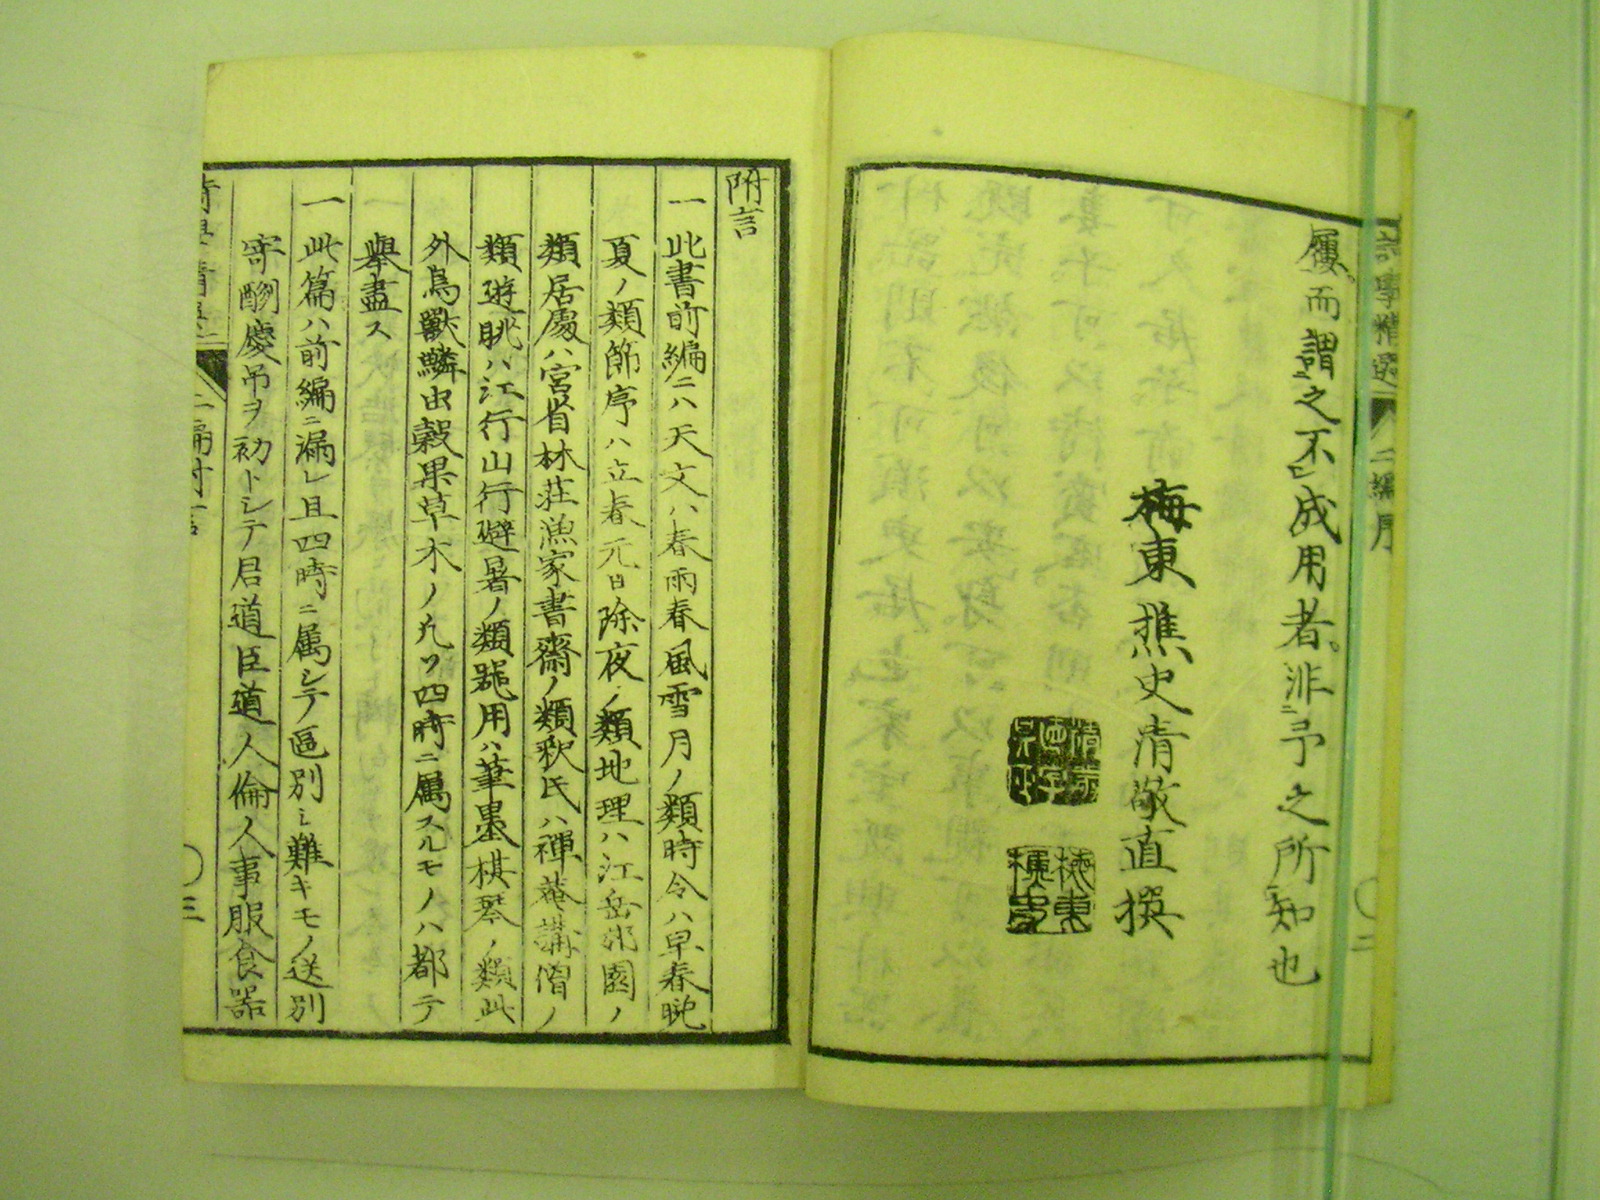 詩學精選 二編序 〇二
屨而謂之不成用者非予之所知也
梅東樵史清敬直撰
梅東樵史
附言
一此書前編ニハ天文ハ春雨春風雪月ノ類時令ハ早春晩
夏ノ類節序ハ立春元日除夜ノ類地理ハ江岳郊園ノ
類居處ハ宮省林莊漁家書齋ノ類釈氏ハ禪菴講僧ノ
類遊眺ハ江行山行避暑ノ類器用ハ筆墨棋琴ノ類此
外鳥獸鱗虫穀果草木ノ凡ソ四時ニ属スルモノハ都テ
擧盡ス
一此篇ハ前編ニ漏レ且四時ニ属シテ區別シ難キモノ送別
寄酬慶吊ヲ初トシテ君道臣道人倫ノ人事服食器
二編附言 〇三